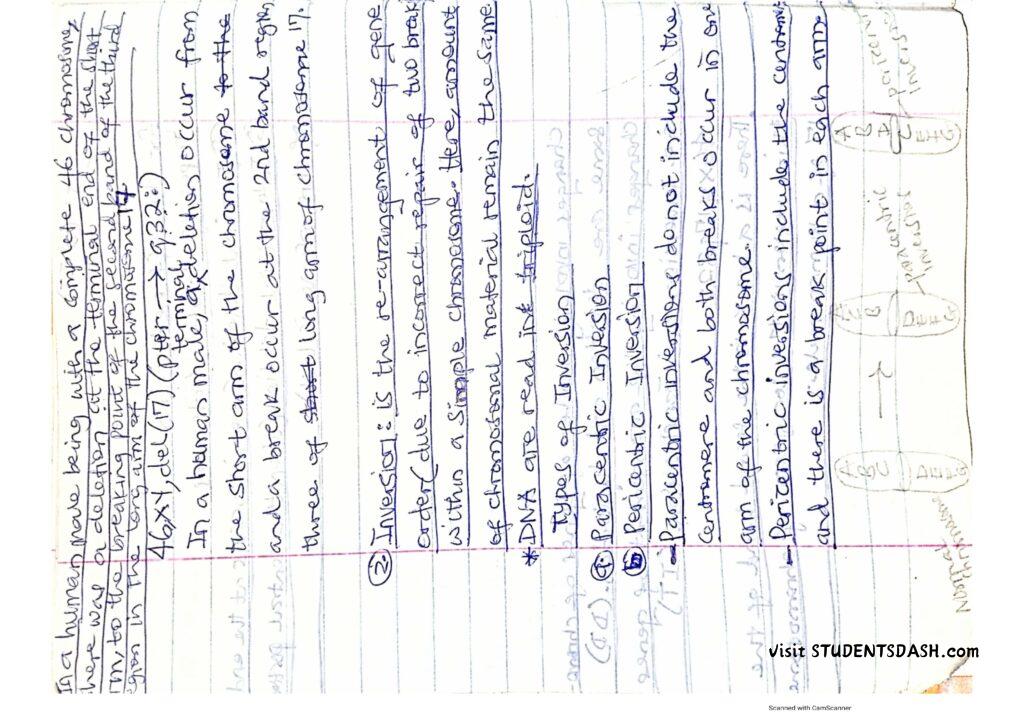 In a human male being with a complete 46 chromosome,
there was a deletion at the terminal end of the short
arm, to the breaking point of the second band of the third
region in the long arm of the chromosome 17
46XY, del(17)(pter → q32:)
In a human male, a terminal deletion occur from
the short arm of the chromosome to the
and a break occur at the 2nd band region
three of short long arm of chromosome 17.
2. Inversion: is the re-arrangement of gene
order (due to incorrect repair of two break
within a simple chromosome. Here, amount
of chromosomal material remain the same
* DNA are read in triploid.
Types of Inversion
a. Paracentric Inversion
b. Pericentric Inversion
- Paracentric inversions do not include the
Centromere and both breaks occur in one
arm of the chromosome.
- Pericentric inversions include the centrome
and there is a break point in each arm
A B C
D E F G
→
B
D E F G
- paracentric
inversion
A B
E F G
pericen
inversi
Normal
chromosome
visit STUDENTSDASH.com
Scanned with CamScanner